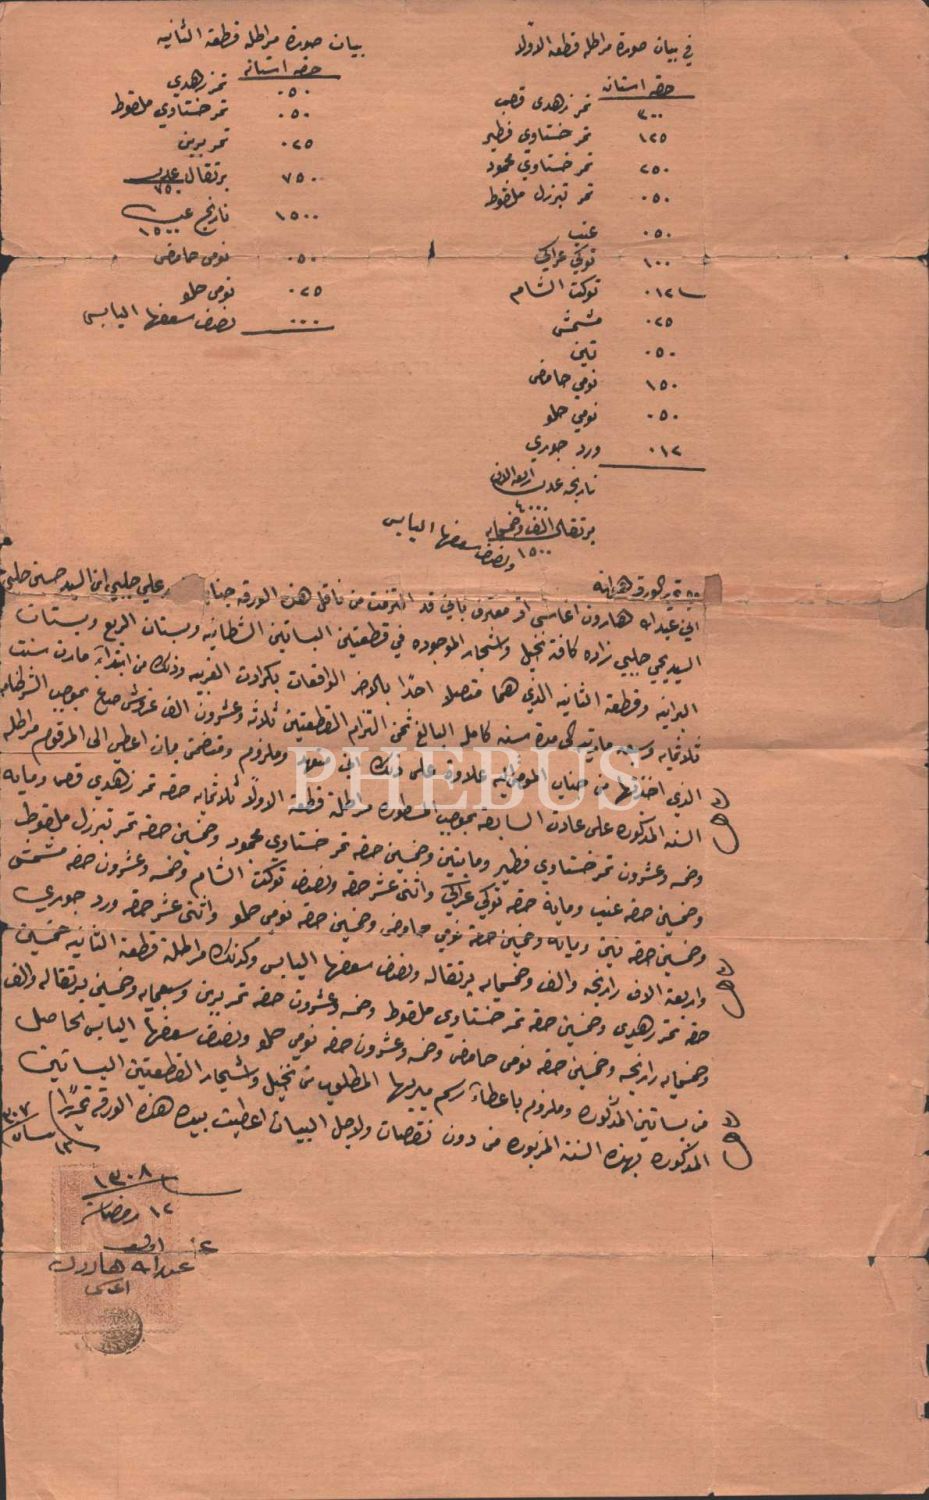 في بيان صورة مراطله قطعه الاولا
حقه استانه
٣٠٠ تمر زهدي قصب
١٢٥ تمر خستاوي فطير
٢٥٠ تمر خستاوي محمود
٠٥٠ تمر تبرزل ملقوط
٠٥٠ عنب
١٠٠ توكي عراقي
٠١٢ توكت الشام
٠٢٥ مشمش
٠٥٠ تين
١٥٠ نومي حامض
٠٥٠ نومي حلو
٠١٢ ورد جوري
نارنجه عدد اربعة الاف
٤٠٠٠
برتقال الف وخمسمايه
١٥٠٠ ونصف سعفها اليابس
بيان صورة مراطله قطعه الثانيه
حقه استانه
٠٥٠ تمر زهدي
٠٥٠ تمر خستاوي ملقوط
٠٢٥ تمر بربن
٧٥٠ برتقال عدد
٧٥٠
١٥٠٠ نارنج
١٥٠٠
٠٥٠ نومي حامض
٠٢٥ نومي حلو
٠٠٠ نصف سعفها اليابس
اني عبدالله هارون اغاسي اقر معترف باني قد التزمت من ناقل هذه الورقه جناب علي جلبي ابن السيد حسين جلبي
السيد يحيى جلبي زاده كافة نخيل واشجار الموجوده في قطعتين البساتين الشطانيه وبستان الربع وبستان
وقطعة الثانيه الذي هما متصلا احدا بالاخر الواقعات بكرادت الغربيه وذلك من ابتداء مارت سنت
ثلاثمايه وسبعه ماليه الى مدة سنه كامل البالغ ثمن التزام القطعتين ثلاثة وعشرون الف غروش صاغ بموجب
الذي اخذتها من جناب المومى اليه علاوة على ذلك اني متعهد وملزوم ومتضمن بان اعطي الى المرقوم مراطله
السنه المذكوره على عادت السابقه بموجب المسطوره مراطلة قطعة الاولا ثلاثمايه حقه تمر زهدي قصب ومايه
وخمسه وعشرون تمر خستاوي فطير ومايتين وخمسين حقه تمر خستاوي محمود وخمسين حقه تمر تبرزل ملقوط
وخمسين حقه عنب وماية حقه توكي عراقي واثنى عشر حقه ونصف توكت الشام وخمسه وعشرون حقه مشمش
وخمسين حقه تين ومايه وخمسين حقه نومي حامض وخمسين حقه نومي حلو واثنى عشر حقه ورد جوري
واربعة الاف نارنجه والف وخمسمايه برتقاله ونصف سعفها اليابس وكذلك مراطلة قطعة الثانيه خمسين
حقه تمر زهدي وخمسين حقه تمر خستاوي ملقوط وخمسه وعشرون حقه تمر بربن وسبعمايه وخمسين برتقاله والف
وخمسمايه نارنجه وخمسين حقه نومي حامض وخمسه وعشرون حقه نومي حلو ونصف سعفها اليابس الحاصل
من بساتين المذكوره وملزوم باعطاء رسم ميريها المطلوب من نخيل واشجار القطعتين البساتين
المذكوره بهذه السنه المزبوره من دون نقصان ولاجل البيان اعطيت بيده هذه الورقه تحريرا
١٣٠٧
١٣٠٨
١٢ رمضان
عبدالله هارون
اغاسي
PHEBUS